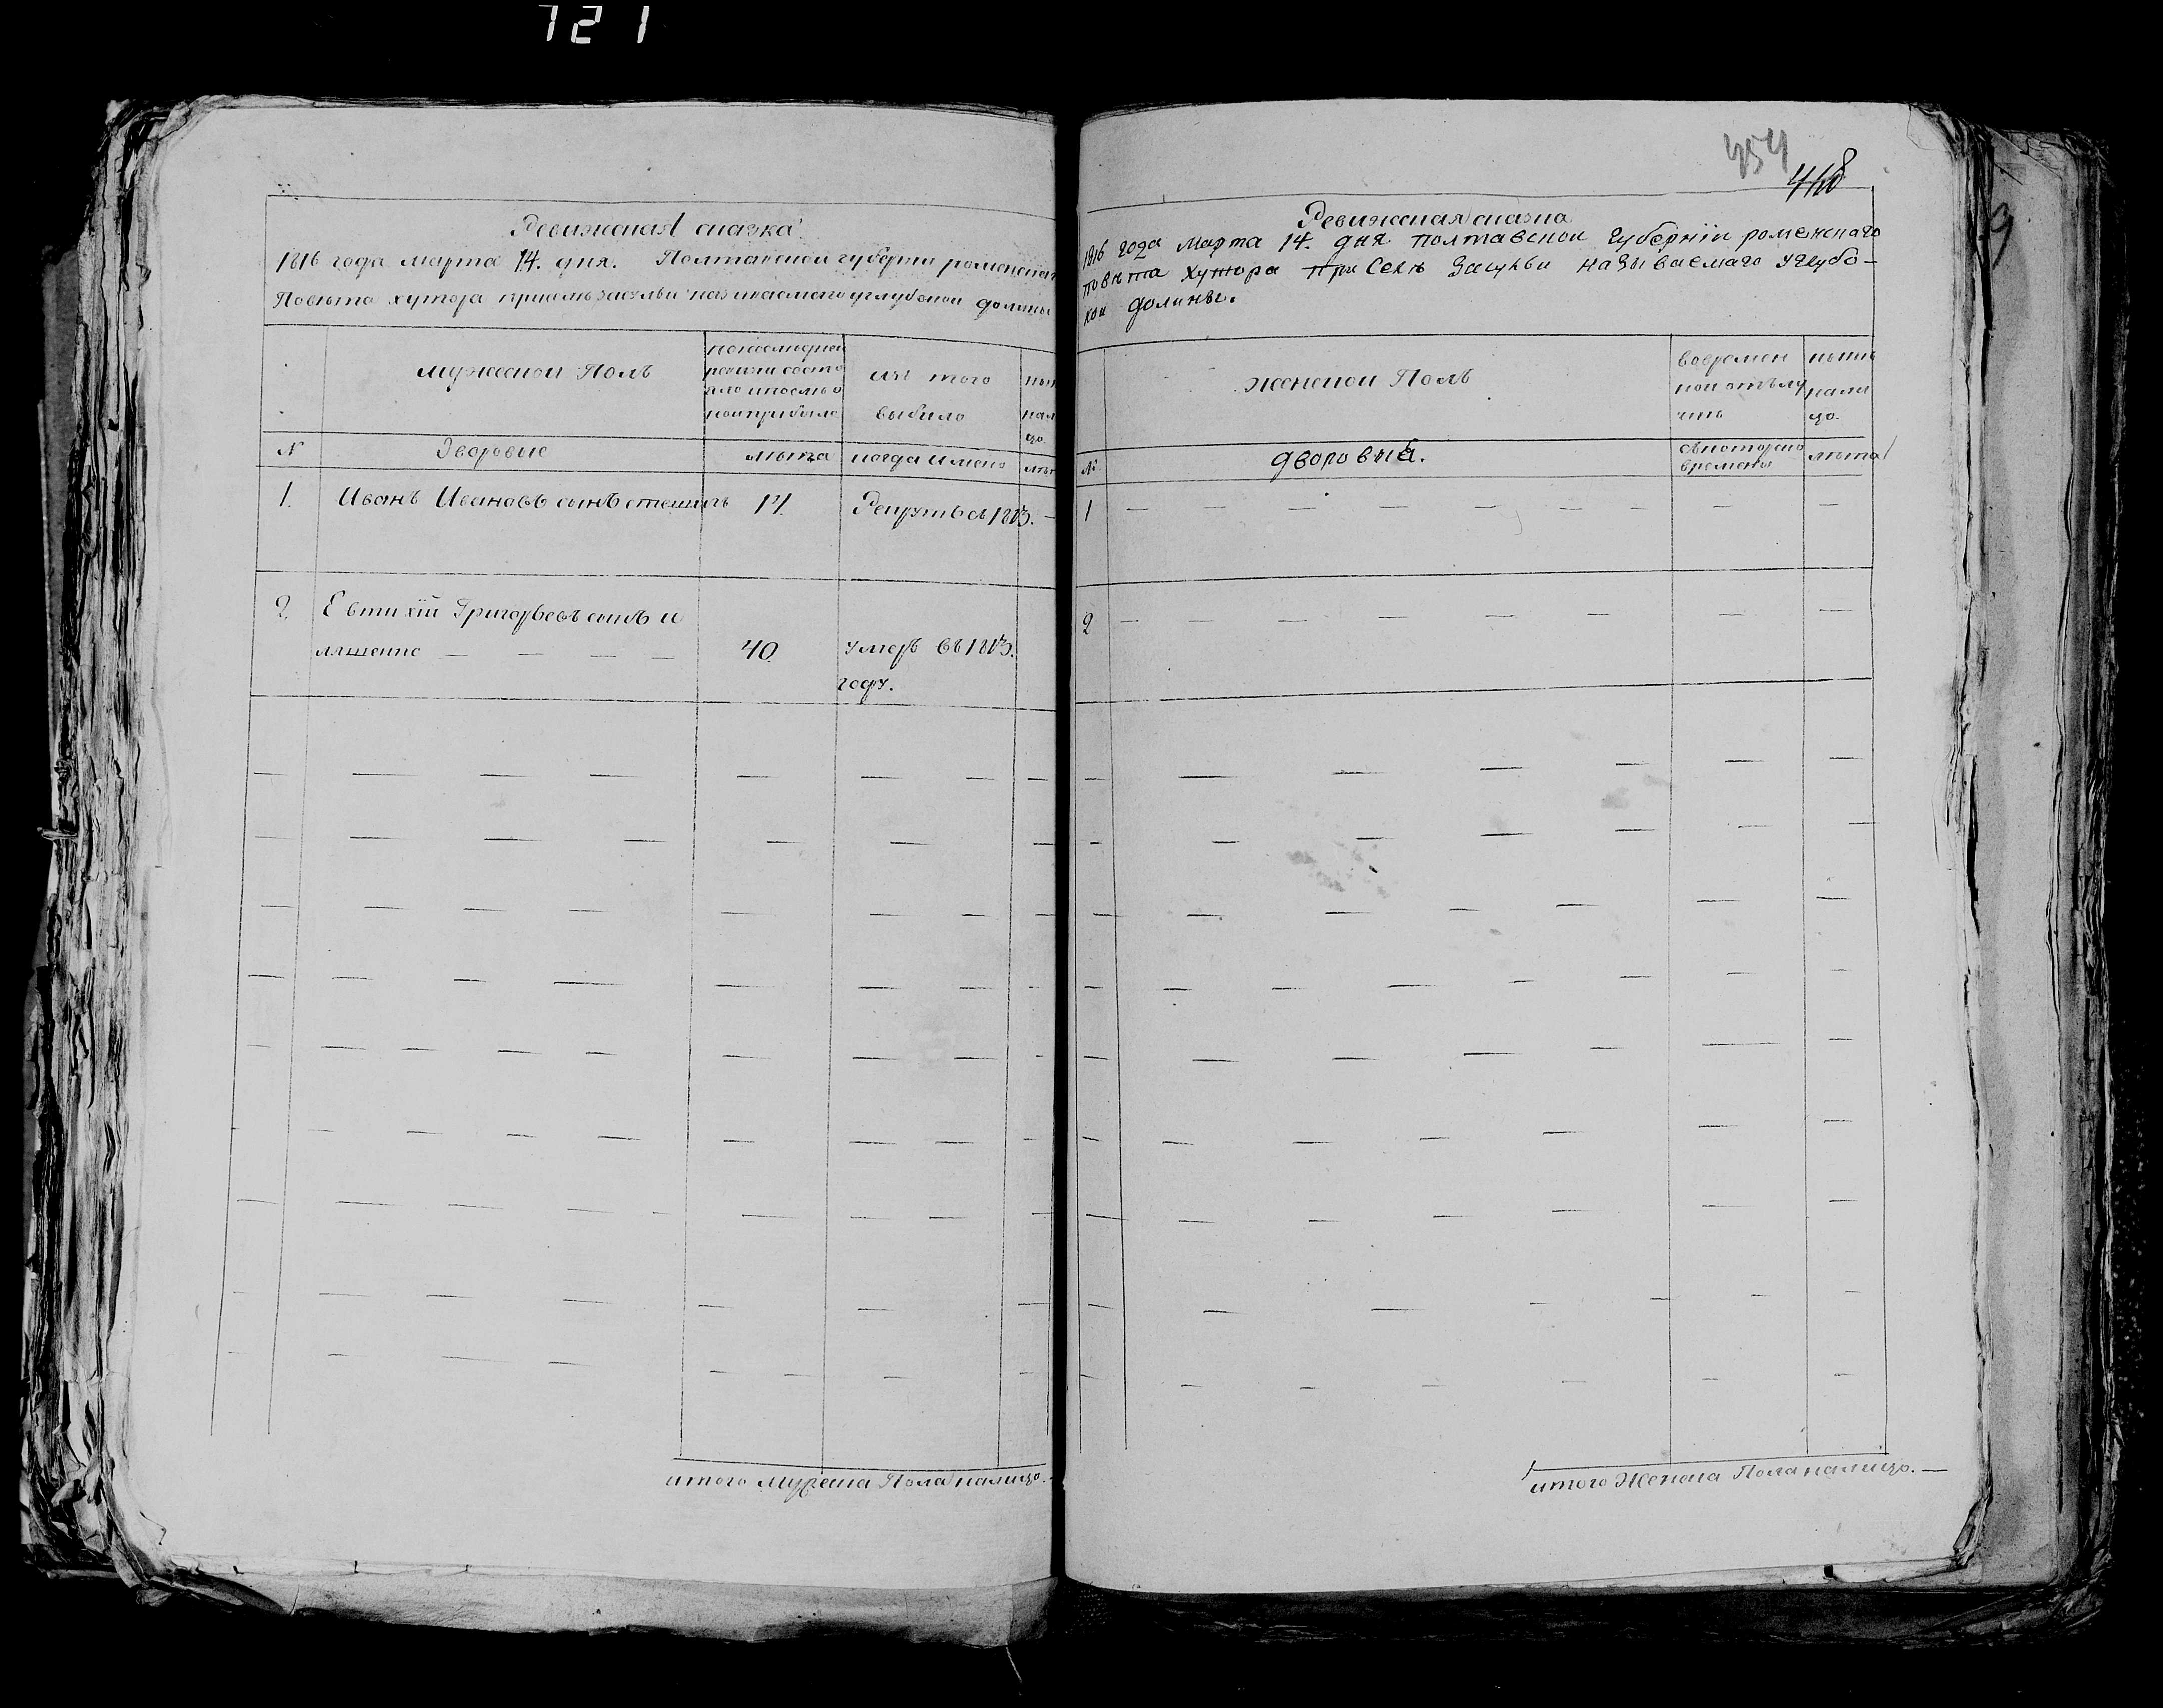 721
Ревижская сказка
1816 года марта 14. дня. Полтавской губернии роменскаго
Повѣта хутора приселѣ засульи называемаго углубокой долины
мужеской Полъ
попослѣдней
ревизи состо
яло и послѣ о
ной прибыло
изъ того
выбыло
нын
нали
цо.
№
Дворовие
лѣта
когда имено
лѣт
1.
Иванъ Ивановъ сынъ
14
Рекрутъ въ 1813. —
2.
Евтихїй Григорьевъ сынъ и
ляшенко — — — —
40.
умеръ въ 1813.
году.
итого Мужеска Пола налицо. —
454
418
Ревижская сказка
1816 года марта 14. дня полтавской губернїи роменскаго
повѣта хутора при Селѣ Засульи называемаго углубо-
кой долины.
женской Полъ
вовремен
ной отълу
чкѣ
нынѣ
нали
цо.
№
дворовыя.
скотораго
времени
лѣта
1 — — — — — — — — —
2 — — — — — — —
итого Женска Пола налицо. —
9